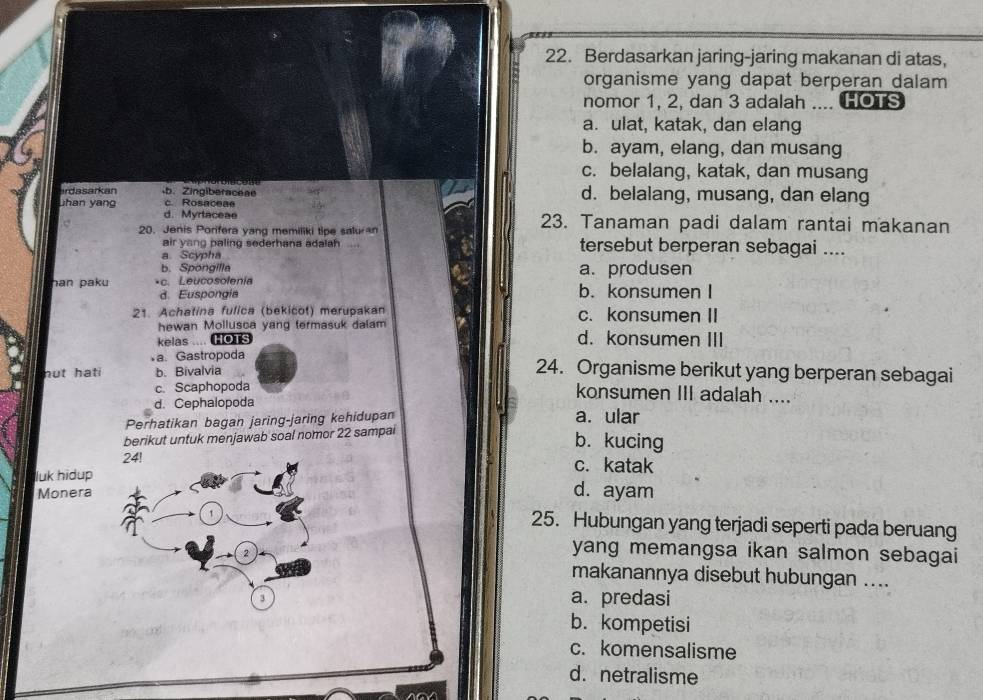 erdasarkan
uhan yang
b. Zingiberaceae
c. Rosaceae
d. Myrtaceae
20. Jenis Porifera yang memiliki tipe saluran
air yang paling sederhana adalah ....
a. Scypha
b. Spongilla
han paku
c. Leucosolenia
d. Euspongia
21. Achatina fulica (bekicot) merupakan
hewan Mollusca yang termasuk dalam
kelas .... HOTS
a. Gastropoda
nut hati
b. Bivalvia
c. Scaphopoda
d. Cephalopoda
Perhatikan bagan jaring-jaring kehidupan
berikut untuk menjawab soal nomor 22 sampai
24!
luk hidup
Monera
1
2
3
22. Berdasarkan jaring-jaring makanan di atas,
organisme yang dapat berperan dalam
nomor 1, 2, dan 3 adalah .... HOTS
a. ulat, katak, dan elang
b. ayam, elang, dan musang
c. belalang, katak, dan musang
d. belalang, musang, dan elang
23. Tanaman padi dalam rantai makanan
tersebut berperan sebagai ....
a. produsen
b. konsumen I
c. konsumen II
d. konsumen III
24. Organisme berikut yang berperan sebagai
konsumen III adalah ....
a. ular
b. kucing
c. katak
d. ayam
25. Hubungan yang terjadi seperti pada beruang
yang memangsa ikan salmon sebagai
makanannya disebut hubungan ....
a. predasi
b. kompetisi
c. komensalisme
d. netralisme